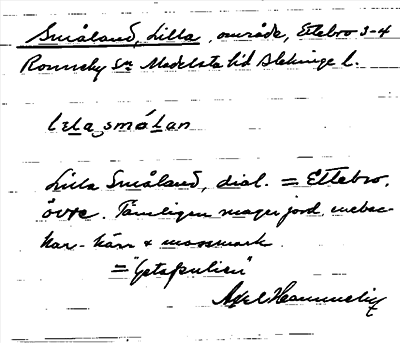 Småland, Lilla, område, Ettebro 3-4
Ronneby sn Medelsta hd Blekinge l.
lɛla småлan
Lilla Småland, dial. = Ettebro,
övre. Tämligen mager jord, mebac-
kar - kärr & mossmark
= "Getapulien"
Axel